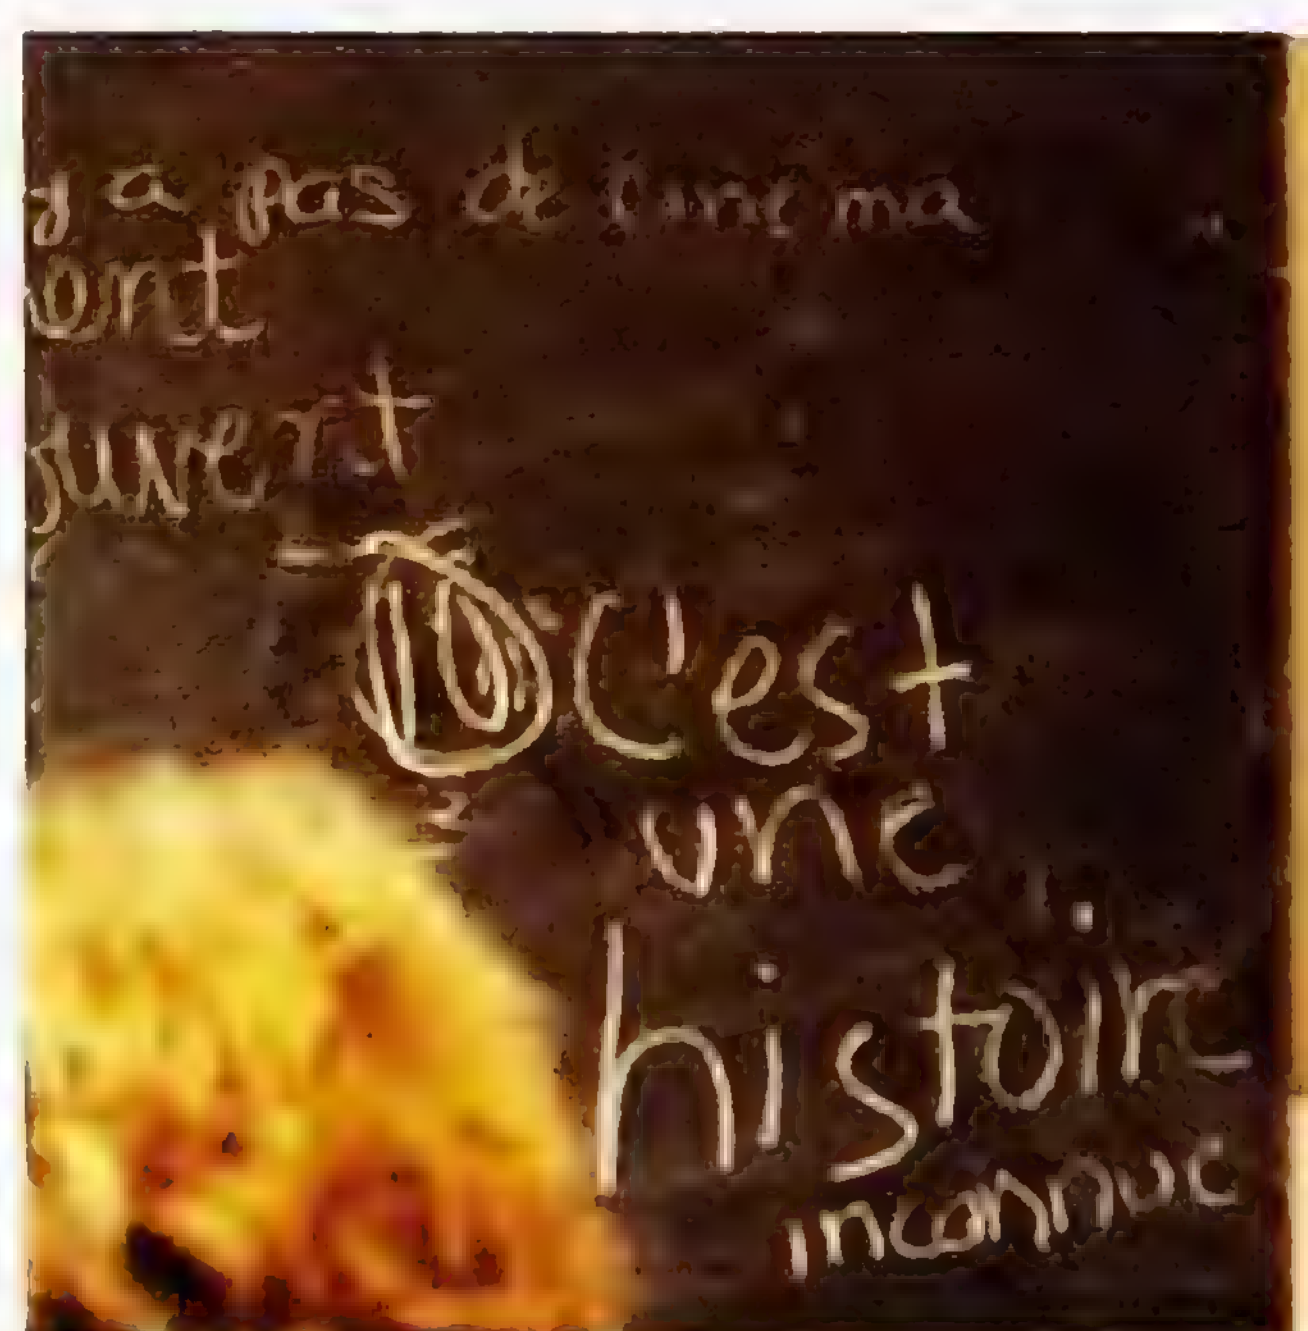 y a pas de
ont
ouvert
C'est
une
histoire
inconnue